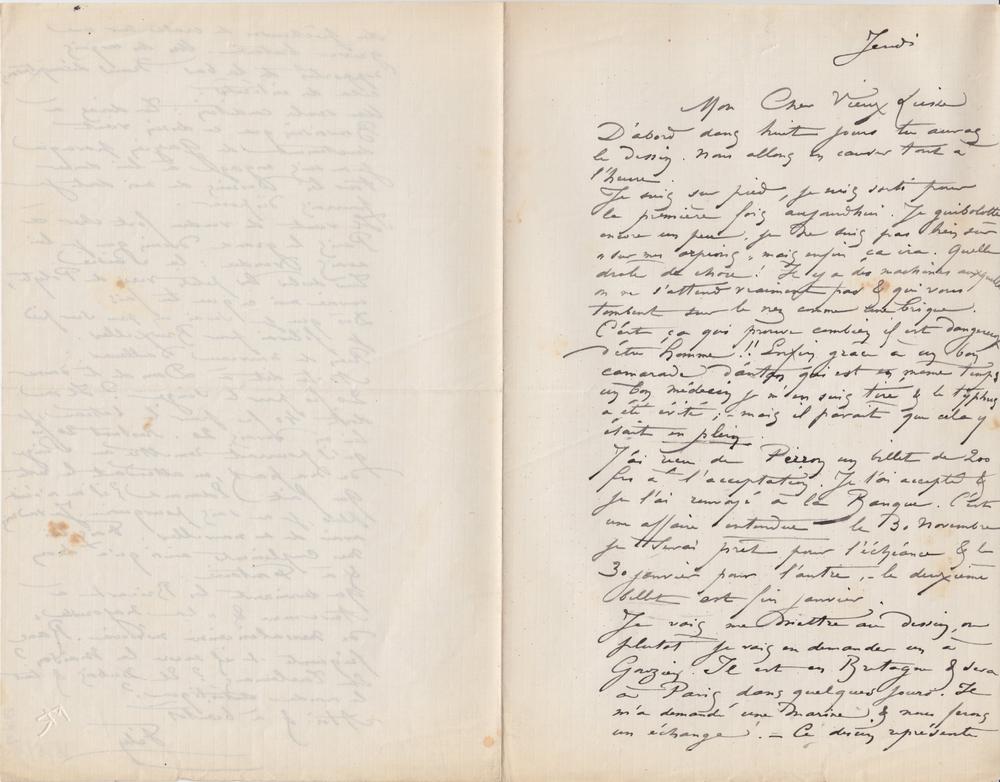 Jeudi
Mon Cher Vieux
D'abord dans huit jours tu auras
le dessin. Nous allons en causer tout à
l'heure.
Je suis sur pied, je suis sorti pour
la première fois aujourdhui. Je guibolotte
encore un peu, je ne suis pas bien sûr
"sur mes arpions", mais enfin ça ira. Quelle
drole de chose! Il y a des machines auxquelles
on ne s'attend vraiment pas & qui vous
tombent sur le nez comme une brique.
C'est ça qui prouve combien il est dangereux
d'être homme!! Enfin grace à un bon
camarade qui est en même temps
un bon médecin je m'en suis tiré & le typhus
a été évité; - mais il parait que cela y
était en plein.
J'ai reçu de Perron un billet de 200
frs à l'acceptation. Je l'ai accepté &
je l'ai renvoyé à la Banque. C'est
une affaire entendue le 30 Novembre
je serai prêt pour l'échéance & le
30 janvier pour l'autre, - le deuxième
billet est fin janvier.
Je vais me mettre au dessin, ou
plutot je vais en demander un à
Il est en Bretagne & sera
à Paris dans quelques jours. Il
m'a demandé une marine & nous ferons
un échange. - Ce dessin représente